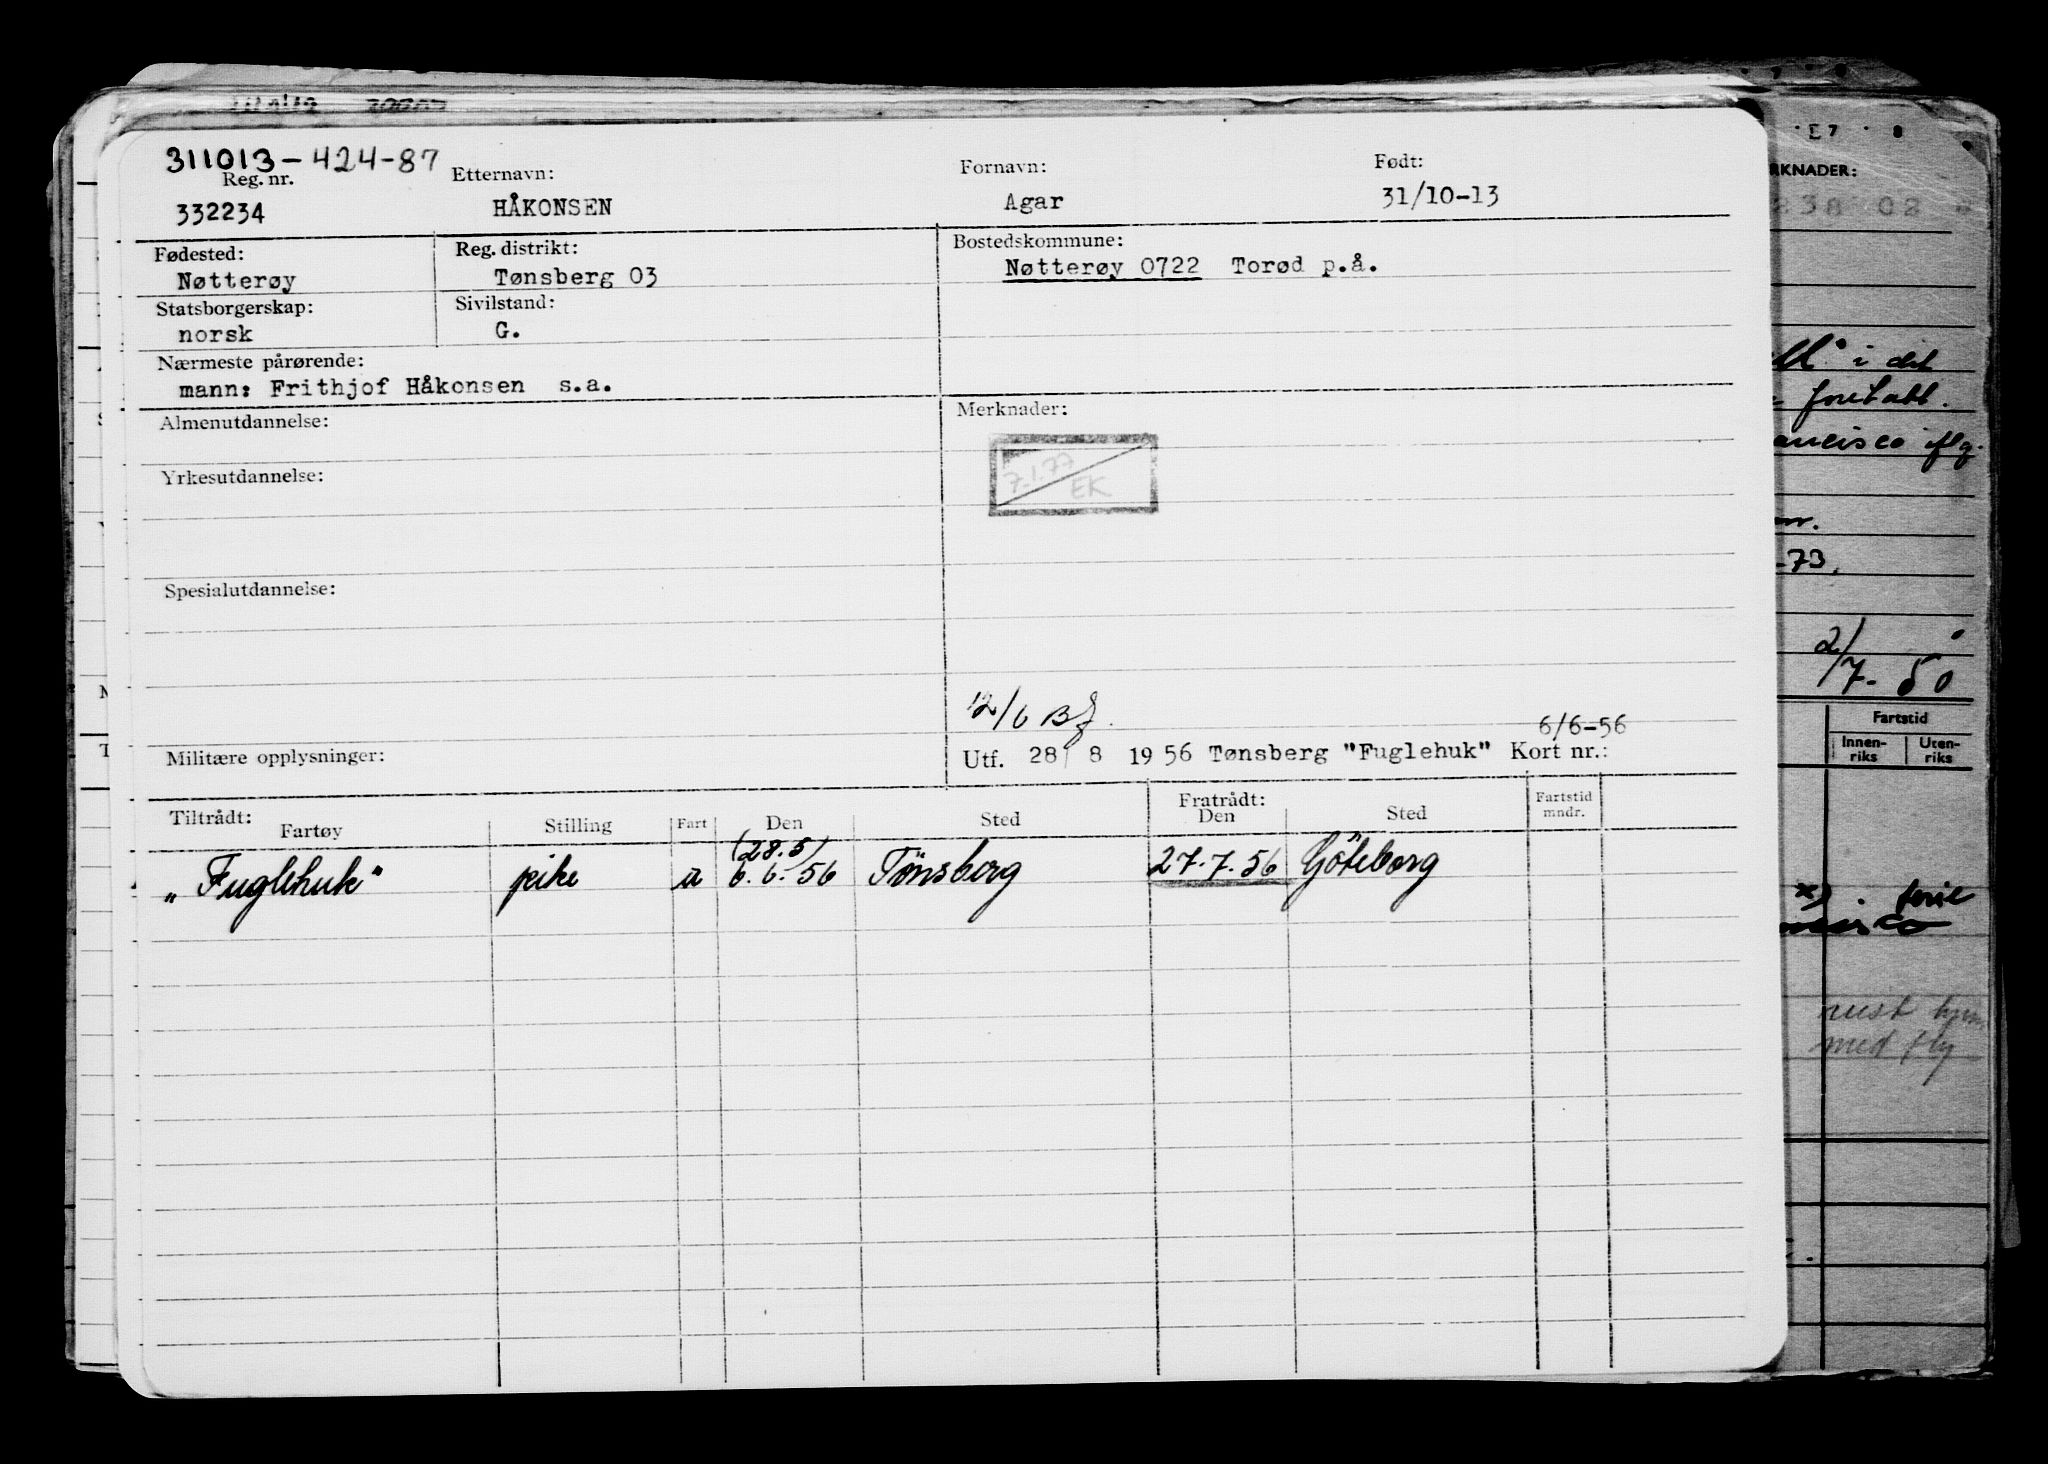 311013-424-87
Reg. nr. Etternavn: Fornavn: Født:
332234 HÅKONSEN Agar 31/10-13
Fødested: Reg. distrikt: Bostedskommune:
Nøtterøy Tønsberg 03 Nøtterøy 0722 Torød p.å.
Statsborgerskap: Sivilstand:
norsk G.
Nærmeste pårørende:
mann: Frithjof Håkonsen s.a.
Almenutdannelse: Merknader:
7.1.77
EK
Yrkesutdannelse:
Spesialutdannelse:
12/6
6/6-56
Militære opplysninger: Utf. 28/ 8 1956 Tønsberg "Fuglehuk" Kort nr.:
Tiltrådt: Fratrådt:
Fartøy Stilling Fart Den Sted Den Sted Fartstid mndr.
(28.5)
„Fuglehuk" pike u 6.6.56 Tønsberg 27.7.56 Göteborg
RKNADER:
i det
ancisco iflg.
-73.
2/7-50
Fartstid
Innen-riks Uten-riks
x) ferie
med fly